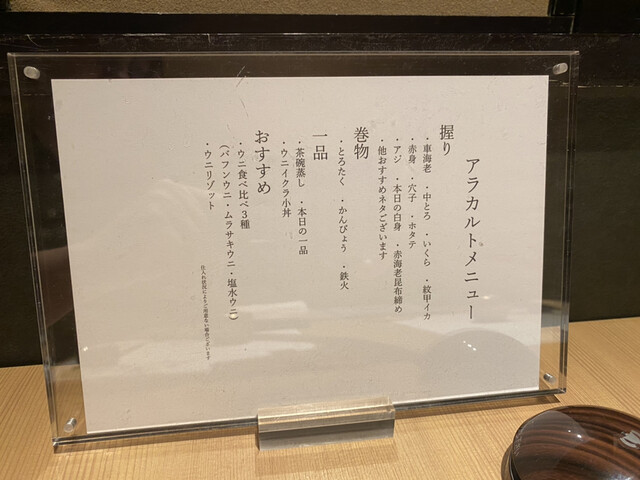 アラカルトメニュー
握り
・車海老 ・中とろ ・いくら ・紋甲イカ
・赤身 ・穴子 ・ホタテ
・アジ ・本日の白身 ・赤海老昆布締め
・他おすすめネタございます
巻物
・とろたく ・かんぴょう ・鉄火
一品
・茶碗蒸し ・本日の一品
・ウニイクラ小丼
おすすめ
・ウニ食べ比べ3種
（バフンウニ・ムラサキウニ・塩水ウニ）
・ウニリゾット
仕入れ状況によりご用意ない場合ございます